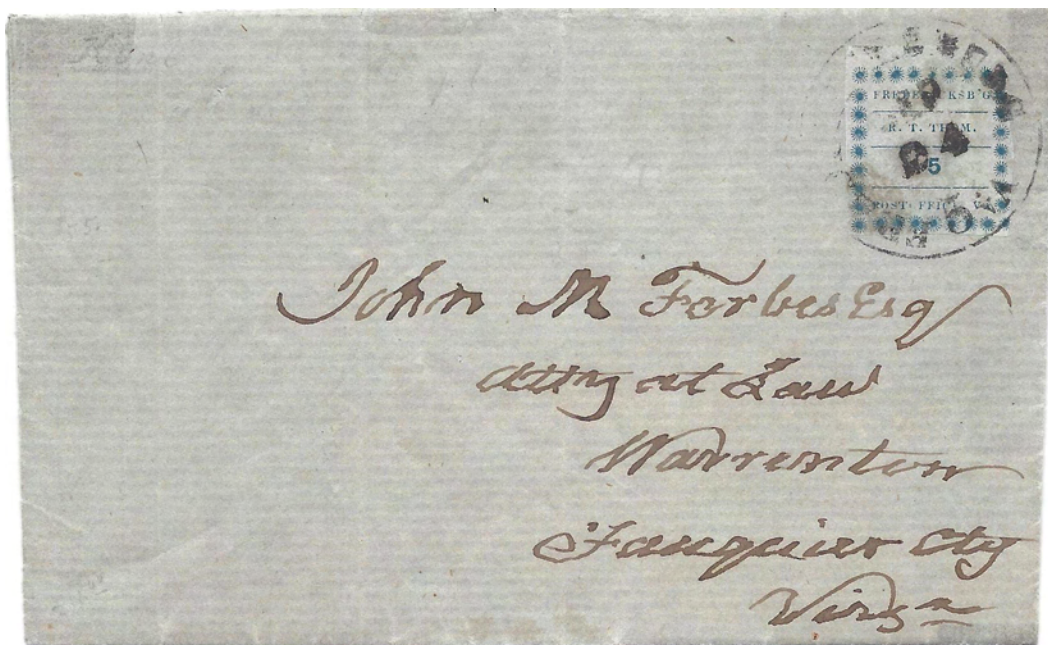 FREDERICKSB'G.
R. T. THOM.
5
POST OFFICE, VA.
John M Forbes Esq
Atty at Law
Warrenton
Fauquier Cty
Virga